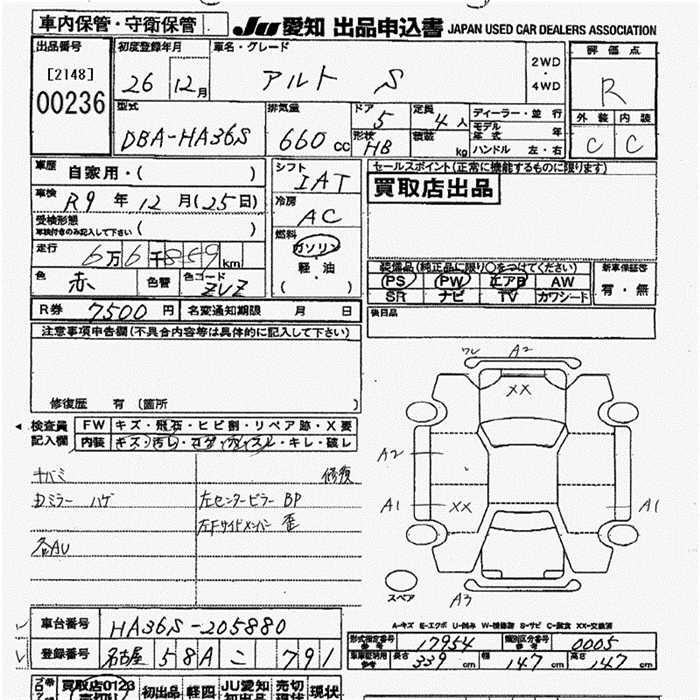 車内保管・守衛保管 JU 愛知 出品申込書 JAPAN USED CAR DEALERS ASSOCIATION
出品番号 初度登録年月 車名・グレード 評価点
[2148] 26 12月 アルト S 2WD・4WD R
00236
型式 排気量 ドア 5 定員 4人 ディーラー・並行 外装 内装
DBA-HA36S 660cc 形状 HB 積載 kg モデル年式 年 C C
ハンドル 左・右
車歴 自家用・( ) シフト IAT セールスポイント(正常に機能するものに限ります)
車検 R9年12月(25日) 冷房 AC 買取店出品
受検形態 車検付きのみ記入して下さい ( )
走行 6万6千859km 燃料 ガソリン 軽・油 ( )
色 赤 色替 色コード ZVZ
装備品(純正品に限り○をつけてください) 新車保証書
PS PW エアB AW 有・無
SR ナビ TV カワシート
R券 7500円 名変通知期限 月 日 後日品
注意事項申告欄(不具合内容等は具体的に記入して下さい)
修復歴 有(箇所
検査員記入欄 FW キズ・飛石・ヒビ割・リペア跡・X要
内装 キズ・汚レ・コゲ・カイスレ・キレ・破レ
キバミ 修復
Dミラー ハゲ 左センターピラー BP
左Fサイドメンバー 歪
各AU
ワレ A2
XX
A2
A1 XX A1
スペア A3
A-キズ E-エクボ U-凹み W-補修跡 S-サビ C-腐食 XX-交換済
車台番号 HA36S-205880
登録番号 名古屋 58A こ 791
形式指定番号 参考 17954 類別区分番号 参考 0005
車庫証明用 参考 長さ 339cm 幅 147cm 高さ 147cm
買取店0123 売切り 初出品 軽四 JU愛知 初出品 売切 現状 現状